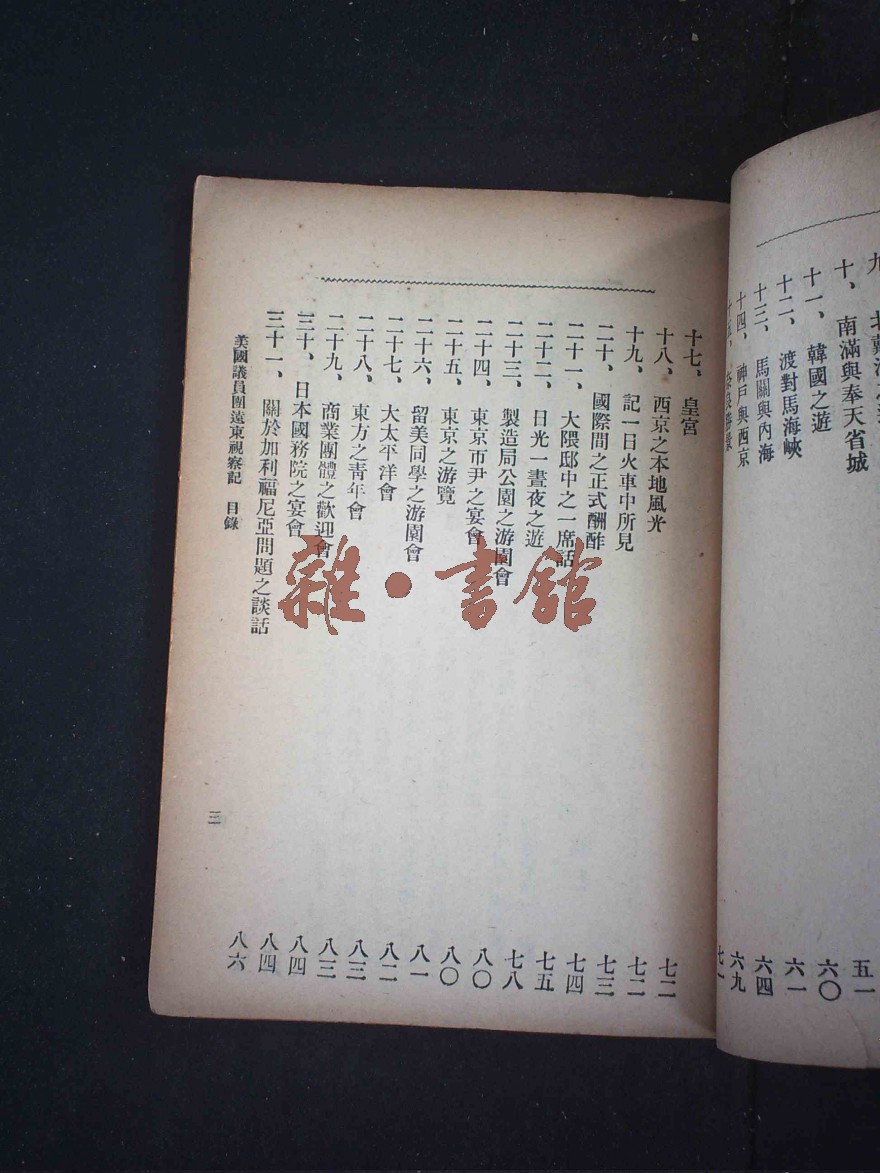 北戴河之
十、南滿與奉天省城
五一
十一、韓國之遊
六〇
十二、渡對馬海峽
六一
十三、馬關與內海
六四
十四、神戶與西京
六九
十七、皇宮
十八、西京之本地風光
七二
十九、記一日火車中所見
七二
二十、國際間之正式酬酢
七三
二十一、大隈邸中之一席話
七四
二十二、日光一晝夜之遊
七五
二十三、製造局公園之游園會
七八
二十四、東京市尹之宴會
八〇
二十五、東京之游覽
八〇
二十六、留美同學之游園會
八一
二十七、大太平洋會
八二
二十八、東方之靑年會
八三
二十九、商業團體之歡迎會
八三
三十、日本國務院之宴會
八四
三十一、關於加利福尼亞問題之談話
八四
八六
美國議員團遠東視察記 目錄
三
雜·書館